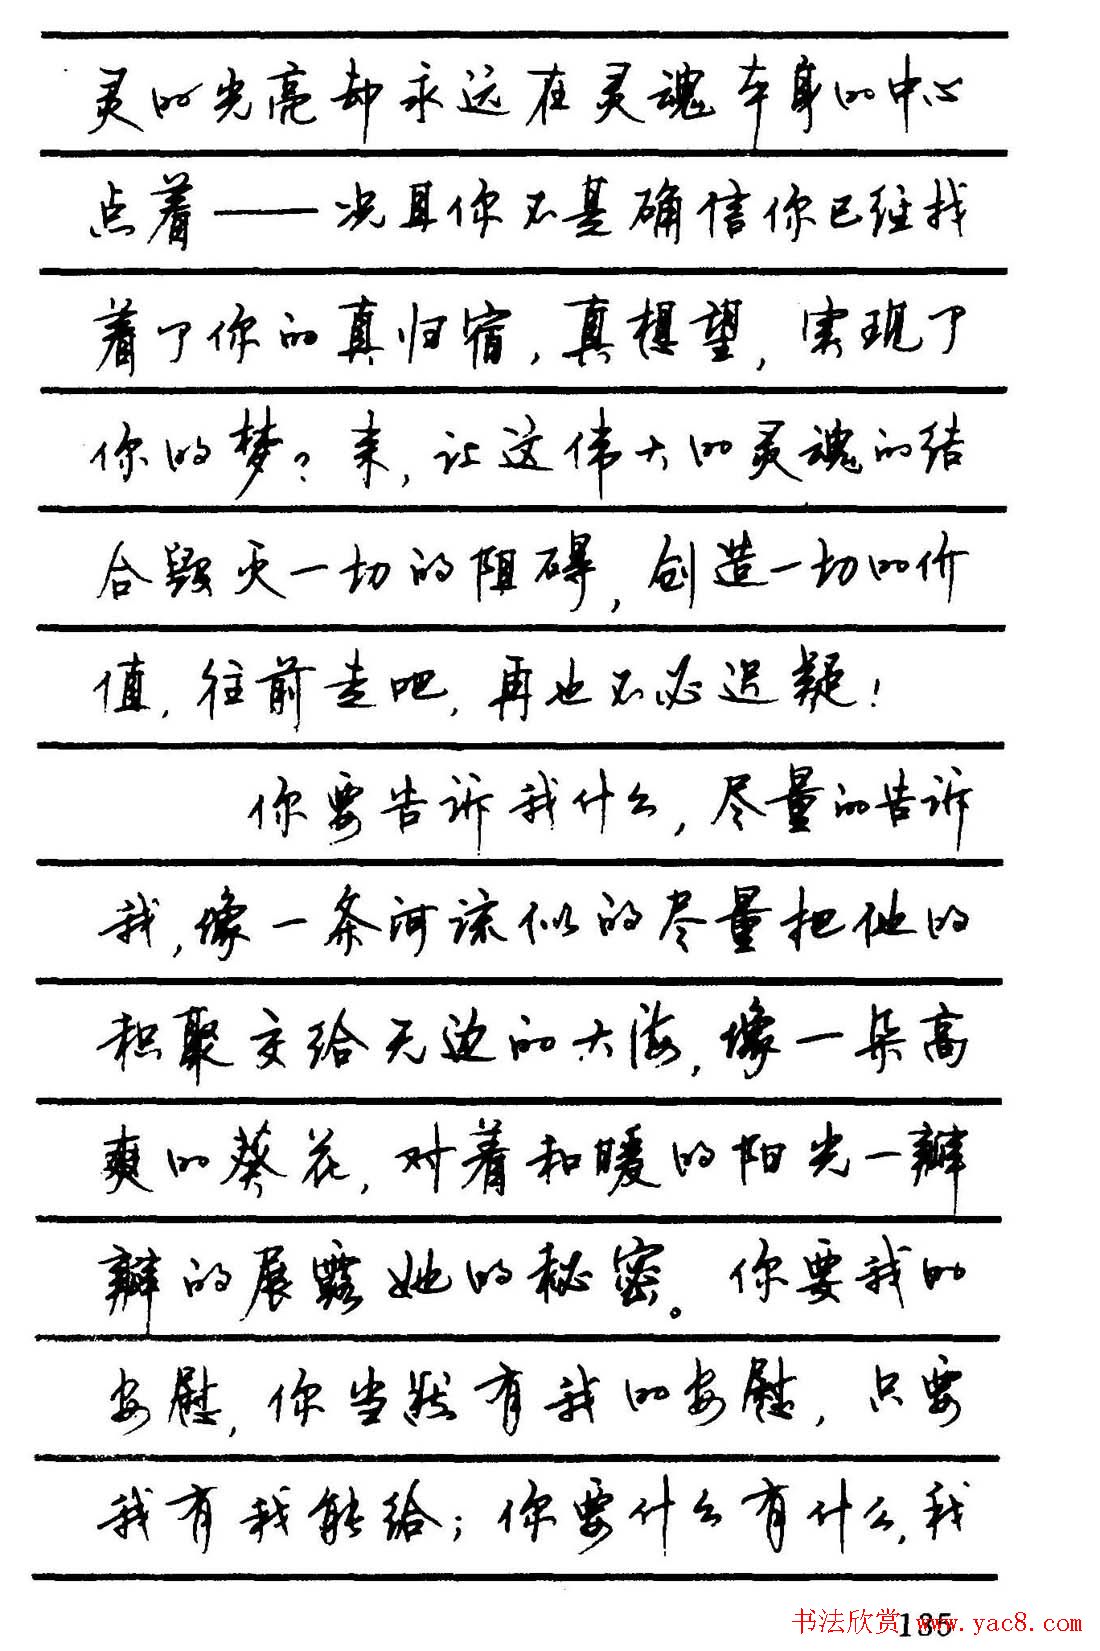 灵的光亮却永远在灵魂本身的中心
点着——况且你不是确信你已经找
着了你的真归宿，真想望，实现了
你的梦？来，让这伟大的灵魂的结
合毁灭一切的阻碍，创造一切的价
值，往前走吧，再也不必迟疑！
你要告诉我什么，尽量的告诉
我，像一条河流似的尽量把他的
积聚交给无边的大海，像一朵高
爽的葵花，对着和暖的阳光一瓣
瓣的展露她的秘密。你要我的
安慰，你当然有我的安慰，只要
我有我能给；你要什么有什么，我
135
书法欣赏 www.yac8.com